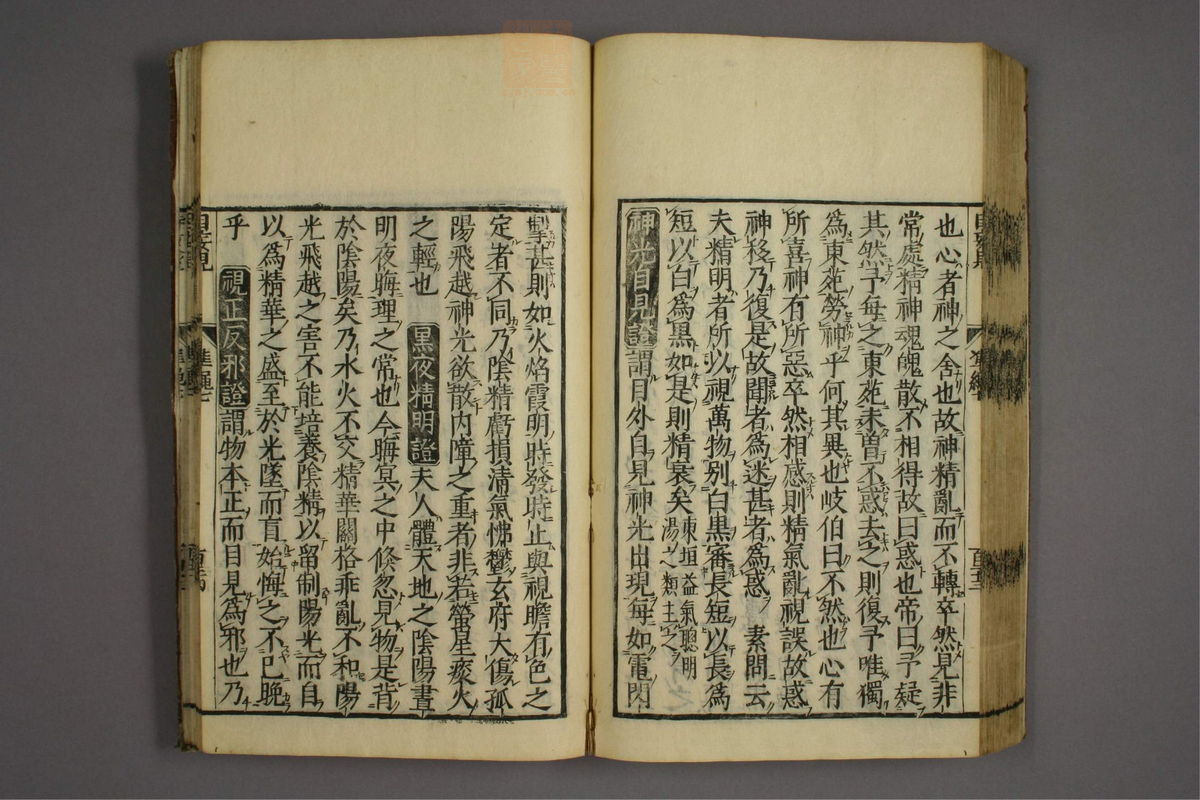 也心者神之舍也故神精亂而不轉卒然見非
常處精神魂魄散不相得故曰惑也帝曰予疑
其然予每之東苑未曽不惑去之則復予唯獨
爲東苑勞神乎何其異也岐伯曰不然也心有
所喜神有所惡卒然相感則精氣亂視誤故惑
神移乃復是故聞者爲迷甚者爲惑　素問云
夫精明者所以視萬物别白黒審長短以長爲
短以白爲黒如是則精衰矣東垣益氣聰明湯之類主之
神光自見證謂目外自見神光出現每如電閃
掣甚則如火焰霞明時發時止與視瞻有色之
定者不同乃陰精虧損清氣怫鬱玄府大傷孤
陽飛越神光欲散内障之重者非若螢星痰火
之輕也　黒夜精明證　夫人體天地之陰陽晝
明夜晦理之常也今晦冥之中倏忽見物是背
於陰陽矣乃水火不交精華關格乖亂不和陽
光飛越之害不能培養陰精以留制陽光而自
以爲精華之盛至於光墜而盲始悔之不已晚
乎　視正反邪證謂物本正而目見爲邪也乃